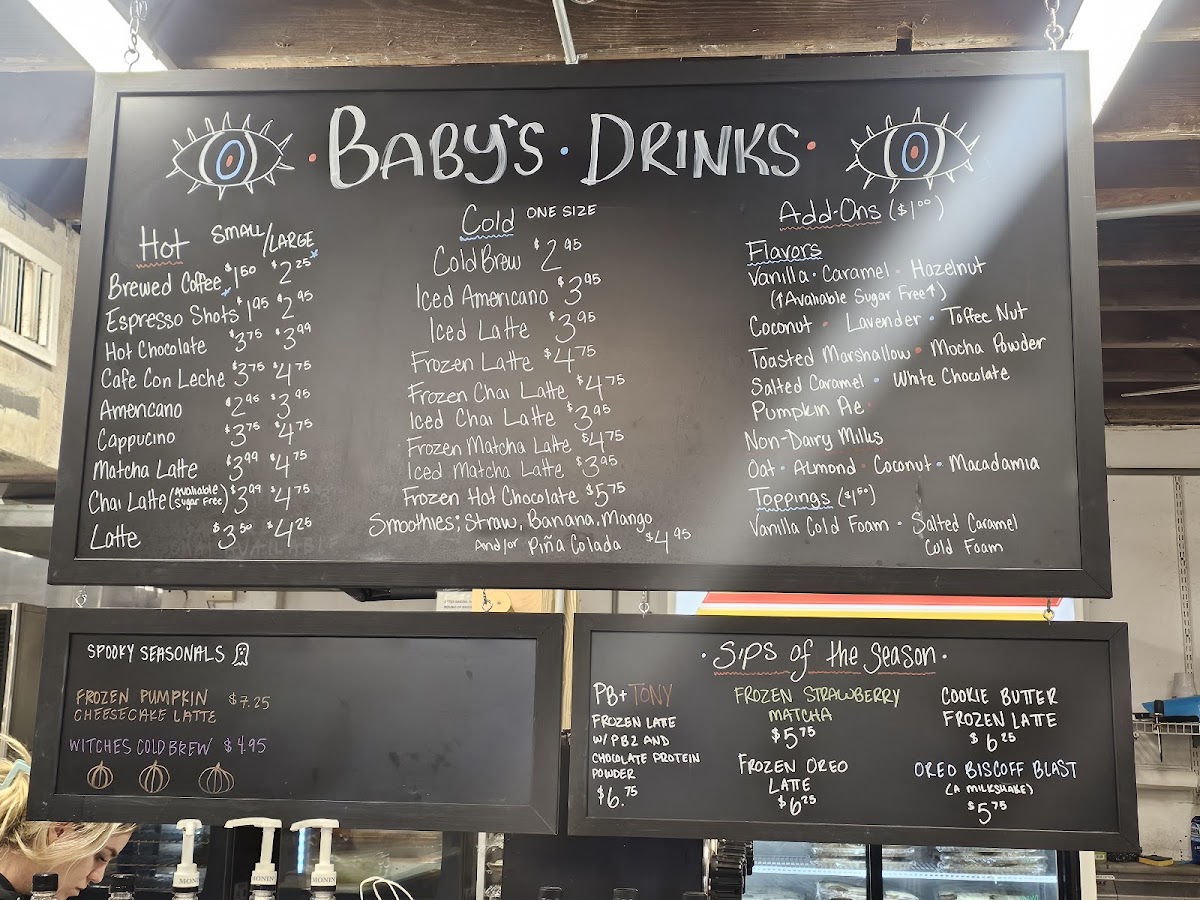 BABY'S · DRINKS
Hot SMALL/LARGE
Brewed Coffee $1.50 $2.25*
Espresso Shots* $1.95 $2.95
Hot Chocolate $3.75 $3.99
Cafe Con Leche $3.75 $4.75
Americano $2.95 $3.95
Cappucino $3.75 $4.75
Matcha Latte $3.99 $4.75
Chai Latte (Avaliable Sugar Free) $3.99 $4.75
Latte $3.50 $4.25
Cold ONE SIZE
Cold Brew $2.95
Iced Americano $3.95
Iced Latte $3.95
Frozen Latte $4.75
Frozen Chai Latte $4.75
Iced Chai Latte $3.95
Frozen Matcha Latte $4.75
Iced Matcha Latte $3.95
Frozen Hot Chocolate $5.75
Smoothies; Straw, Banana, Mango
And/or Piña Colada $4.95
Add-Ons ($1.00)
Flavors
Vanilla · Caramel · Hazelnut
(↑Avaliable Sugar Free↑)
Coconut · Lavender · Toffee Nut
Toasted Marshallow · Mocha Powder
Salted Caramel · White Chocolate
Pumpkin Pie
Non-Dairy Milks
Oat · Almond · Coconut · Macadamia
Toppings ($1.50)
Vanilla Cold Foam · Salted Caramel
Cold Foam
SPOOKY SEASONALS
FROZEN PUMPKIN $7.25
CHEESECAKE LATTE
WITCHES COLD BREW $4.95
· Sips of the Season ·
PB + TONY
FROZEN LATTE
W/ PB2 AND
CHOCOLATE PROTEIN
POWDER
$6.75
FROZEN STRAWBERRY
MATCHA
$5.75
FROZEN OREO
LATTE
$6.25
COOKIE BUTTER
FROZEN LATTE
$6.25
OREO BISCOFF BLAST
(A MILKSHAKE)
$5.75
MONIN
MONIN
MONIN